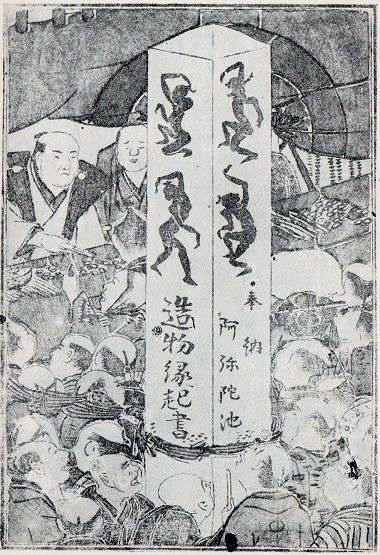 奉納
阿弥陀池
造物縁起書